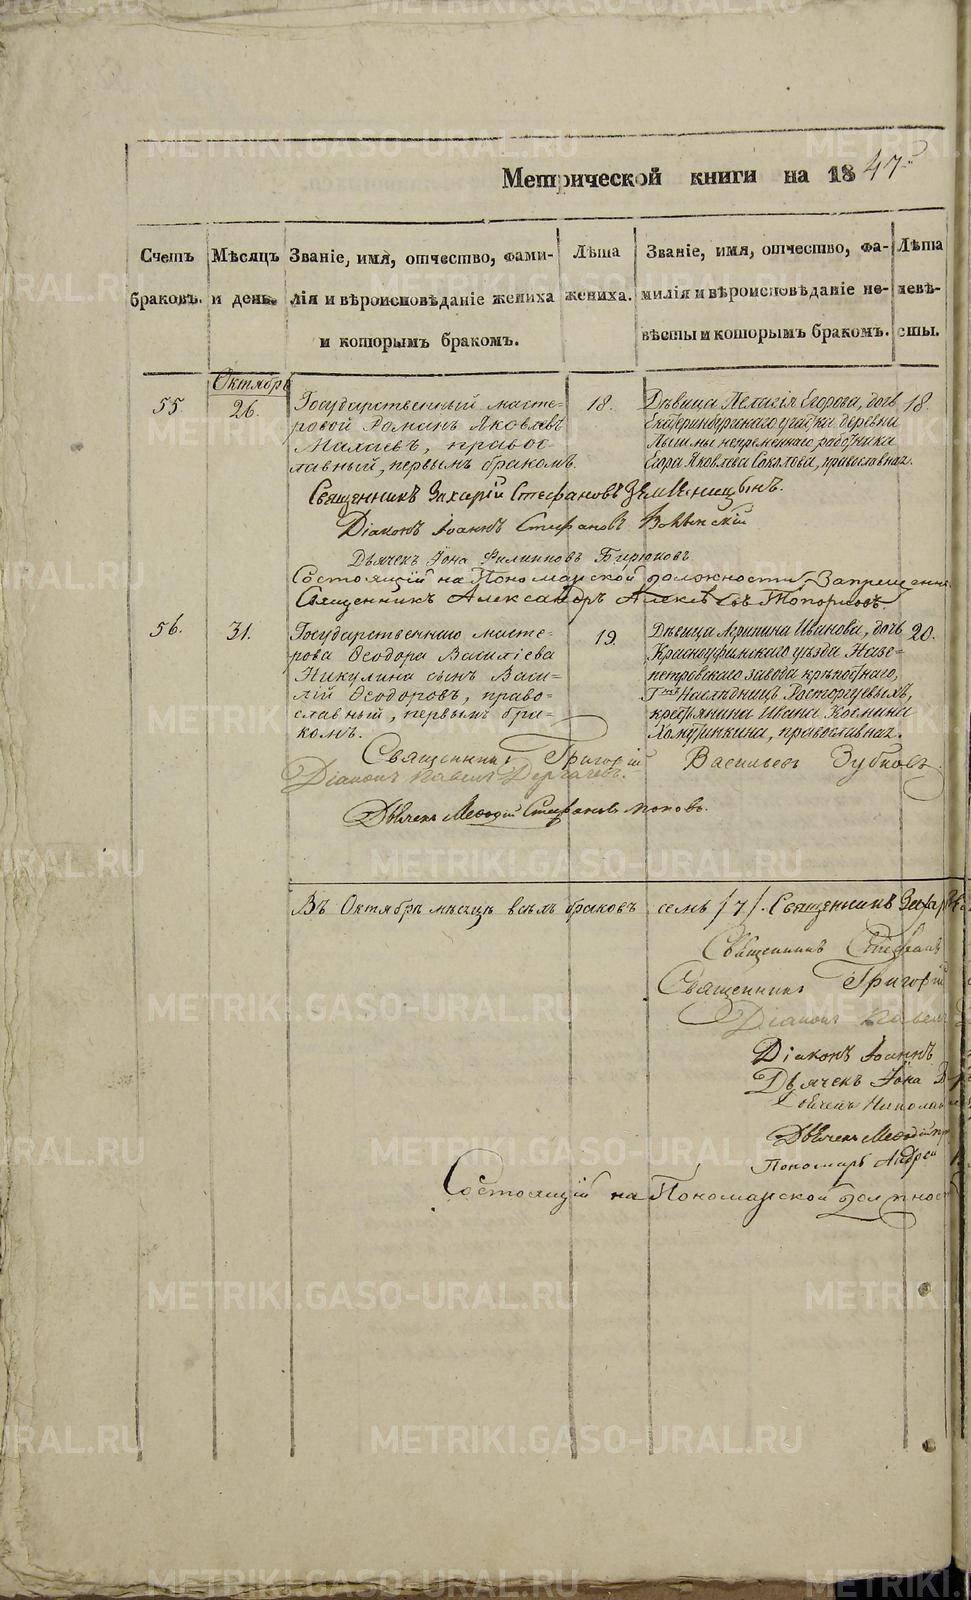 Метрической книги на 1847й
Счетъ браковъ.
Мѣсяцъ и день.
Званіе, имя, отчество, фами-
лія и вѣроисповѣданіе жениха
и которымъ бракомъ.
Лѣта жениха.
Званіе, имя, отчество, фа-
милія и вѣроисповѣданіе не-
вѣсты и которымъ бракомъ.
Лѣта невѣ-
сты.
Октябрь
55.
26.
Государственный масте-
ровой Романъ Яковлевъ
Малаевъ, правос
лавный, первымъ бракомъ.
18.
Дѣвица Пелагія Егорова, дочь
Екатеринбургскаго уѣзда деревни
Пышмы непремѣннаго работника
Егора Яковлева Соколова, православная.
18.
Священникъ Захарій Стефановъ Земляницынъ.
Діаконъ Іоаннъ Стефановъ Волынскій
Дьячекъ Іона Филипповъ Бирюковъ
Состоящій на Пономарской должности Запрещенн
Священникъ Александръ Алексѣевъ Топорковъ.
56.
31.
Государственнаго масте-
рова Ѳеодора Василіева
Никулина сынъ Васи-
лій Ѳеодоровъ, право-
славный, первымъ бра-
комъ.
19.
Дѣвица Агрипина Иванова, дочь
Красноуфимскаго уѣзда Назе-
петровскаго завода крѣпостнаго,
Наслѣдницъ Расторгуевыхъ,
крестьянина Ивана Козмина
Хомутинкина, православная.
20.
Священникъ Григорій Васильевъ Зубковъ.
Діаконъ Павелъ Дергачевъ.
Дьячекъ Меѳодій Стефановъ Поповъ.
Въ Октябрѣ мѣсяцѣ всѣхъ браковъ семь /7/. Священникъ Захар
Священникъ Стефанъ
Священникъ Григорій
Діаконъ Павелъ
Діаконъ Іоаннъ
Дьячекъ Іона
Дьячекъ Николай
Дьячекъ Меѳодій
Пономарь Андрей
Состоящій на Пономарской должнос
METRIKI.GASO-URAL.RU